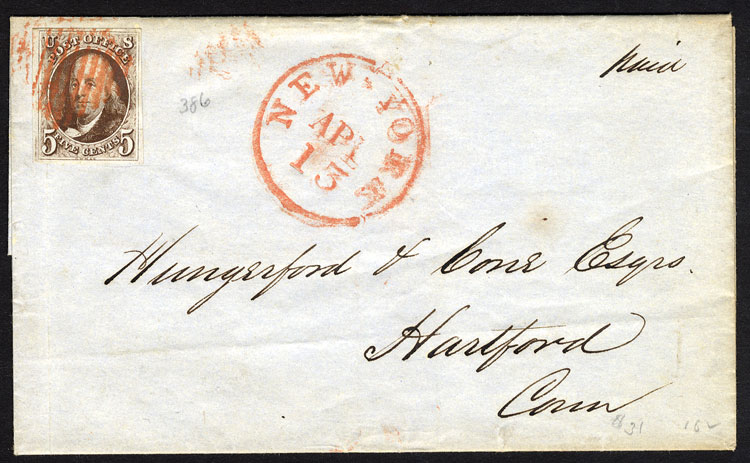 U S
POST OFFICE
5 FIVE CENTS 5
386
NEW-YORK
APL
15
Paid
Hungerford & Cone Esqrs.
Hartford
Conn
31